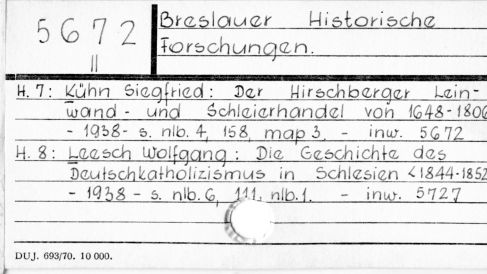 5672
II
Breslauer Historische
Forschungen.
H. 7: Kühn Siegfried: Der Hirschberger Lein-
wand- und Schleierhandel von 1648-1806
- 1938- s. nlb. 4, 158, map 3. - inw. 5672
H. 8: Leesch Wolfgang: Die Geschichte des
Deutschkatholizismus in Schlesien <1844-1852
- 1938 - s. nlb. 6, 111, nlb. 1. - inw. 5727
DUJ. 693/70. 10 000.